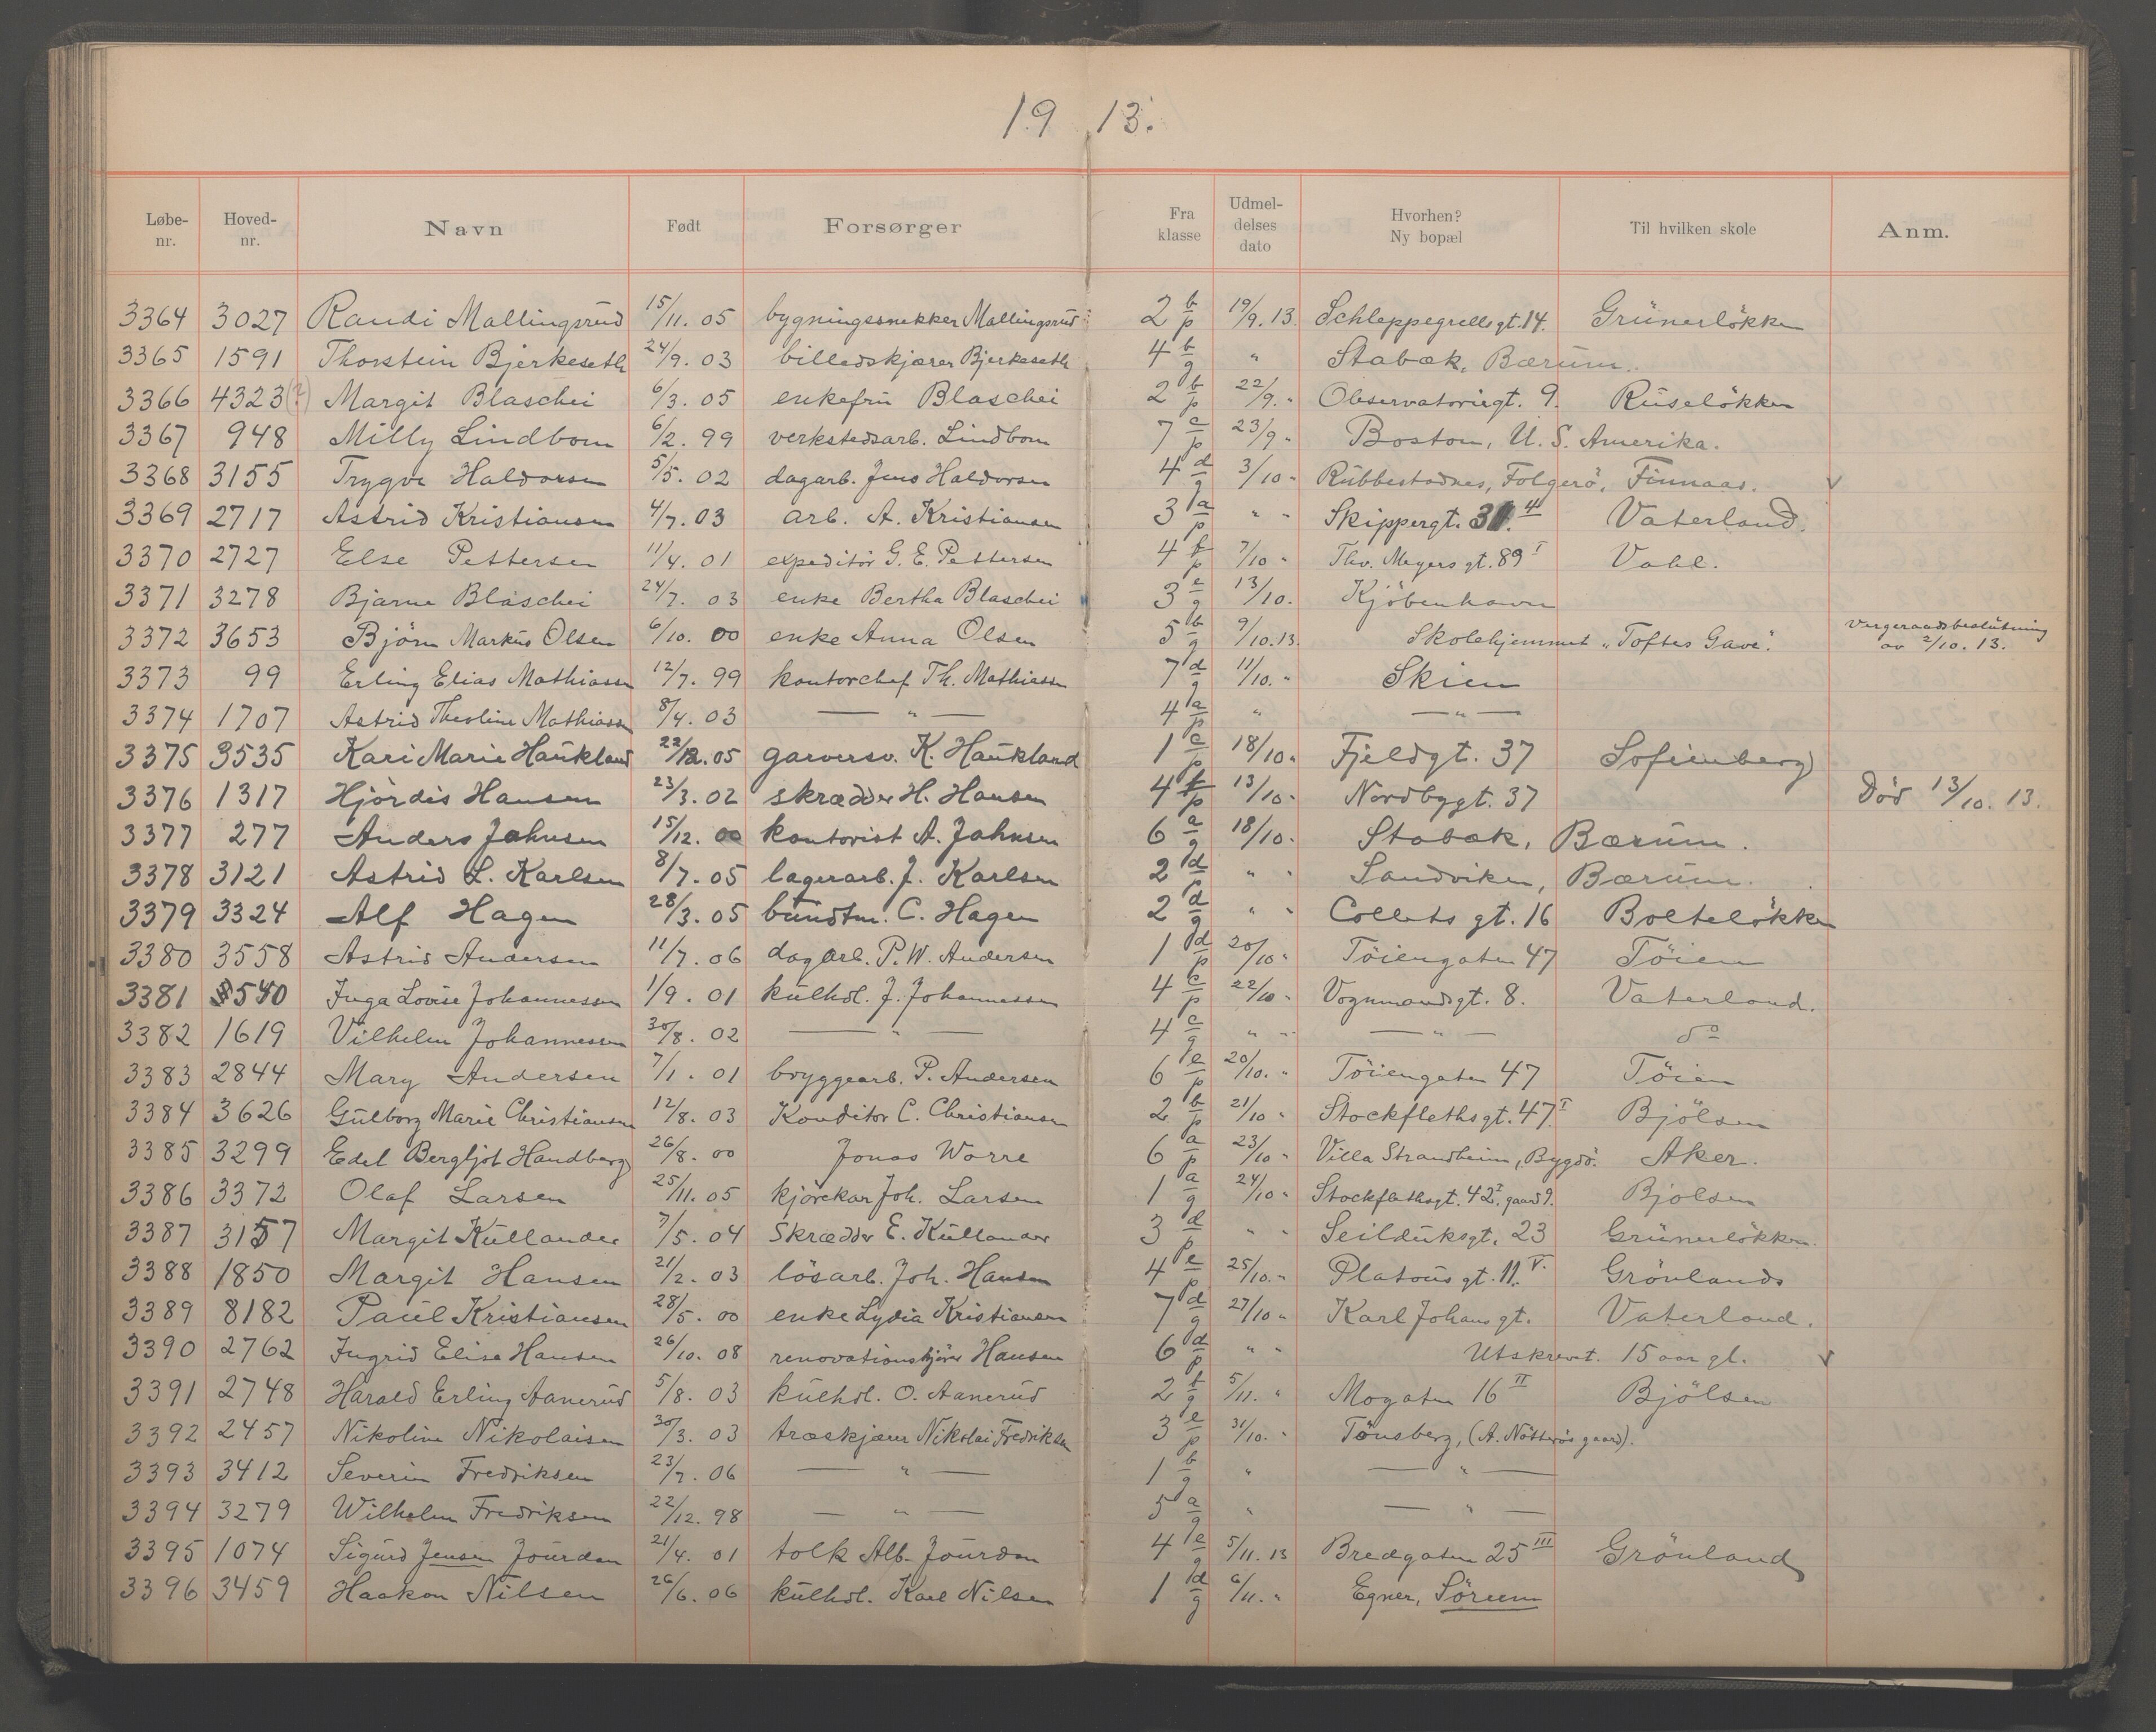 19 13.
Løbe-nr. Hoved-nr. Navn Født Forsørger Fra klasse Udmel-delses dato Hvorhen? Ny bopæl Til hvilken skole Anm.
3364 3027 Randi Mallingsrud 15/11. 05 bygningssnekker Mallingsrud 2 b/p 19/9. 13. Schleppegrellsgt. 14. Grünerløkken
3365 1591 Thorstein Bjerkeseth 24/9. 03 billedskjærer Bjerkeseth 4 b/g " Stabæk, Bærum.
3366 4323 (?) Margit Blaschei 6/3. 05 enkefru Blaschei 2 b/p 22/9. " Observatoriegt. 9. Ruseløkken
3367 948 Milly Lindbom 6/2. 99 verkstedsarb. Lindbom 7 c/p 23/9 " Boston, U. S. Amerika.
3368 3155 Trygve Haldorsen 5/5. 02 dagarb. Jens Haldorsen 4 d/g 3/10 " Rubbestadnes, Folgerö, Finnaas. v
3369 2717 Astrid Kristiansen 4/7. 03 arb. A. Kristiansen 3 a/p " " Skippergt. Vaterland.
3370 2727 Else Pettersen 11/4. 01 expeditör G. E. Pettersen 4 f/p 7/10 " Thv. Meyers gt. 89 I Vahl.
3371 3278 Bjarne Blaschei 24/7. 03 enke Bertha Blaschei 3 e/g 13/10. Kjöbenhavn
3372 3653 Björn Markus Olsen 6/10. 00 enke Anna Olsen 5 b/g 9/10. 13. Skolehjemmet "Toftes Gave". Vergeraadsbeslutning av 2/10. 13.
3373 99 Erling Elias Mathiassen 12/7. 99 kontorchef Th. Mathiassen 7 d/g 11/10. " Skien
3374 1707 Astrid Theoline Mathiassen 8/4. 03 — " — 4 a/p " — " —
3375 3535 Kari Marie Haukland 22/12. 05 garversv. K. Haukland 1 c/p 18/10 " Fjeldgt. 37 Sofienberg
3376 1317 Hjördis Hansen 23/3. 02 skrædder H. Hansen 4 f/p 13/10 " Nordbygt. 37 Död 13/10. 13.
3377 277 Anders Jahnsen 15/12. 00 kontorist A. Jahnsen 6 a/g 18/10 " Stabæk, Bærum.
3378 3121 Astrid L. Karlsen 8/7. 05 lagerarb. J. Karlsen 2 d/p " " Sandviken, Bærum.
3379 3324 Alf Hagen 28/3. 05 bundtm. C. Hagen 2 d/g " " Collets gt. 16 Bolteløkken
3380 3558 Astrid Andersen 11/7. 06 dagarb. P. W. Andersen 1 d/p 20/10 " Töiengaten 47 Töien
3381 540 Inga Lovise Johannessen 1/9. 01 kulhdl. J. Johannessen 4 c/p 22/10 " Vognmandsgt. 8. Vaterland.
3382 1619 Vilhelm Johannessen 30/8. 02 — " — 4 c/g " " — " — do
3383 2844 Mary Andersen 7/1. 01 bryggearb. P. Andersen 6 e/p 20/10. " Töiengaten 47 Töien
3384 3626 Gulborg Marie Christiansen 12/8. 03 Konditor C. Christiansen 2 b/p 21/10 " Stockflethsgt. 47 I Bjölsen
3385 3299 Edel Bergljot Handberg 26/8. 00 Jonas Worre 6 a/p 23/10 " Villa Strandheim, Bygdö. Aker.
3386 3372 Olaf Larsen 25/11. 05 kjörekar Joh. Larsen 1 a/g 24/10 " Stockflethsgt. 42 I. gaard 9. Bjolsen
3387 3157 Margit Kullander 7/5. 04 Skrædder E. Kullander 3 d/p " " Seilduksgt. 23 Grünerløkken.
3388 1850 Margit Hansen 21/2. 03 lösarb. Joh. Hansen 4 e/p 25/10. " Platous gt. 11. V. Grönlands
3389 8182 Paul Kristiansen 28/5. 00 enke Lydia Kristiansen 7 d/g 27/10 " Karl Johans gt. Vaterland.
3390 2762 Ingrid Elise Hansen 26/10. 08 renovationskjörer Hansen 6 d/p " " Utskrevet. 15 aar gl. v
3391 2748 Harald Erling Aanerud 5/8. 03 kulhdl. O. Aanerud 2 f/g 5/11. " Mogaten 16 II Bjölsen
3392 2457 Nikoline Nikolaisen 30/3. 03 træskjærer Nikolai Fredriksen 3 e/p 31/10. " Tönsberg, (A. Nötterös gaard).
3393 3412 Severin Fredriksen 23/7. 06 — " — 1 b/g " — " —
3394 3279 Wilhelm Fredriksen 22/12. 98 — " — 5 a/g " — " —
3395 1074 Sigurd Jensen Jourdan 21/4. 01 tolk Alb. Jourdan 4 e/g 5/11. 13 Bredgaten 25 III Grönland
3396 3459 Haakon Nilsen 26/6. 06 kulhdl. Karl Nilsen 1 d/g 6/11. " Egner, Sörum